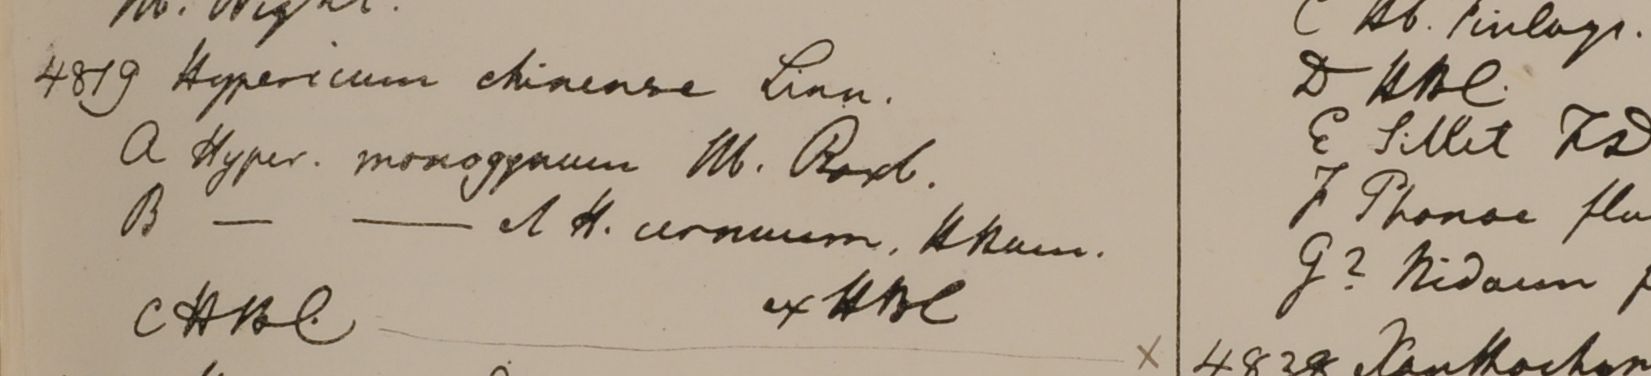 M. Wight.
4819 Hypericum chinense Linn.
A Hyper. monogynum M. Roxb.
B — — et H. cernuum, HHam.
C HBC ex HBC
X
C Hb. Finlays.
D HBC.
E Sillet FD
F Phonoe flu
G? Nidaun
4828 Xanthochym